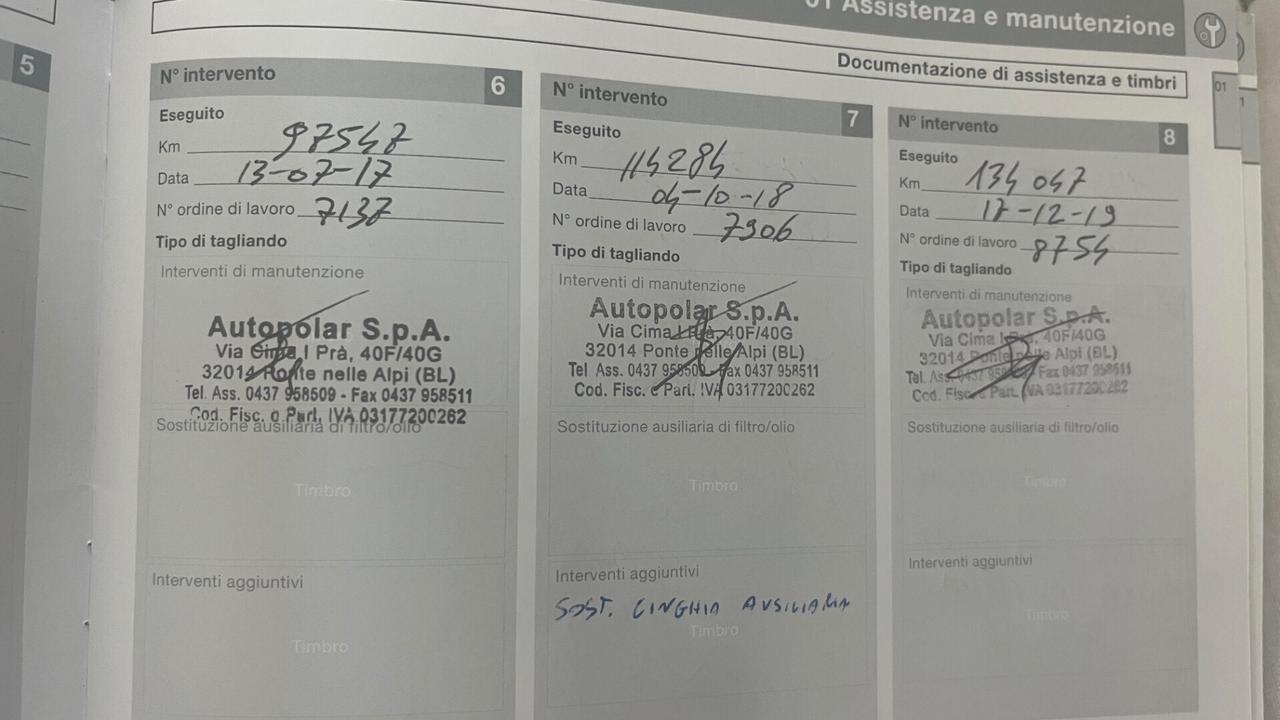 01 Assistenza e manutenzione
Documentazione di assistenza e timbri
01
1
5
N° intervento 6
Eseguito
Km 97547
Data 13-07-17
N° ordine di lavoro 7137
Tipo di tagliando
Interventi di manutenzione
Autopolar S.p.A.
Via Cima I Prà, 40F/40G
32014 Ponte nelle Alpi (BL)
Tel. Ass. 0437 958509 - Fax 0437 958511
Cod. Fisc. e Part. IVA 03177200262
Sostituzione ausiliaria di filtro/olio
Timbro
Interventi aggiuntivi
Timbro
N° intervento 7
Eseguito
Km 114284
Data 04-10-18
N° ordine di lavoro 7906
Tipo di tagliando
Interventi di manutenzione
Autopolar S.p.A.
Via Cima I Prà, 40F/40G
32014 Ponte nelle Alpi (BL)
Tel. Ass. 0437 958509 - Fax 0437 958511
Cod. Fisc. e Part. IVA 03177200262
Sostituzione ausiliaria di filtro/olio
Timbro
Interventi aggiuntivi
SOST. CINGHIA AUSILIARIA
Timbro
N° intervento 8
Eseguito
Km 134 047
Data 17-12-19
N° ordine di lavoro 8754
Tipo di tagliando
Interventi di manutenzione
Autopolar S.p.A.
Via Cima I Prà, 40F/40G
32014 Ponte nelle Alpi (BL)
Tel. Ass. 0437 958509 - Fax 0437 958511
Cod. Fisc. e Part. IVA 03177200262
Sostituzione ausiliaria di filtro/olio
Timbro
Interventi aggiuntivi
Timbro